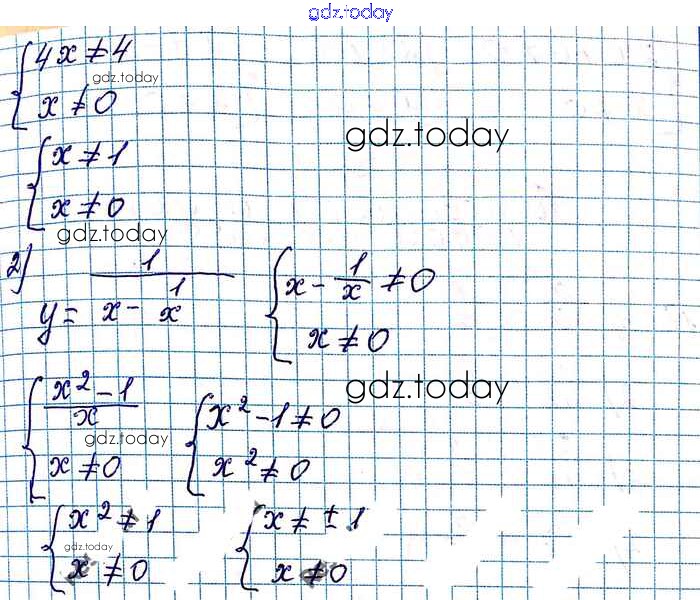 gdz.today
{4x ≠ 4
gdz.today
x ≠ 0
gdz.today
{x ≠ 1
x ≠ 0
gdz.today
2) y = 1/(x - 1/x) {x - 1/x ≠ 0
x ≠ 0
gdz.today
{(x² - 1)/x {x² - 1 ≠ 0
gdz.today
x ≠ 0 x² ≠ 0
{x² ≠ 1 {x ≠ ± 1
gdz.today
x ≠ 0 x ≠ 0